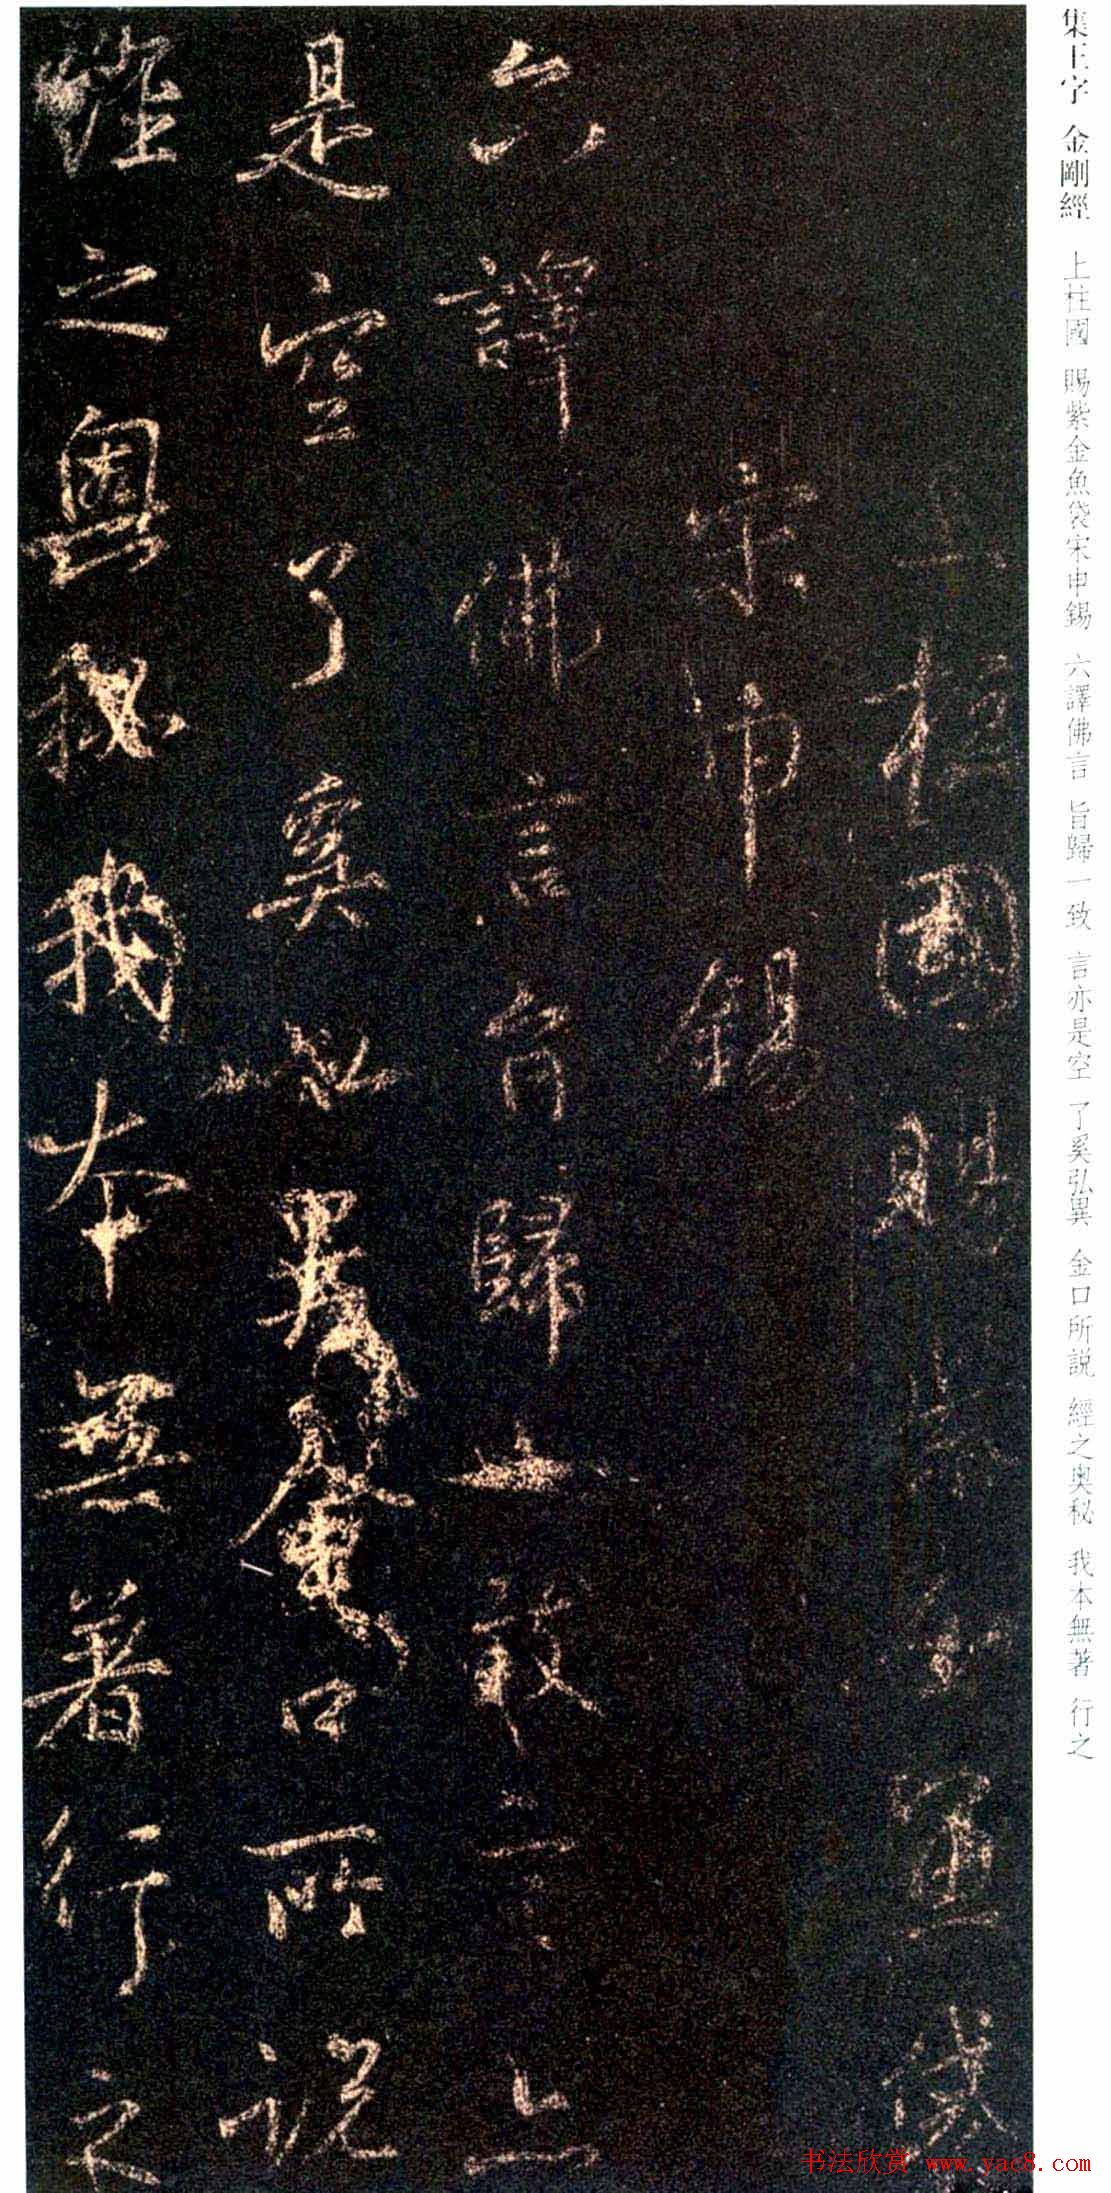 集王字 金剛經 上柱國 賜紫金魚袋宋申錫 六譯佛言 旨歸一致 言亦是空 了奚弘異 金口所説 經之奥秘 我本無著 行之
上柱國賜紫金魚袋
宋申錫
六譯佛言旨歸一致言亦
是空了奚弘異金口所説
經之奥秘我本無著行之
书法欣赏 www.yac8.com